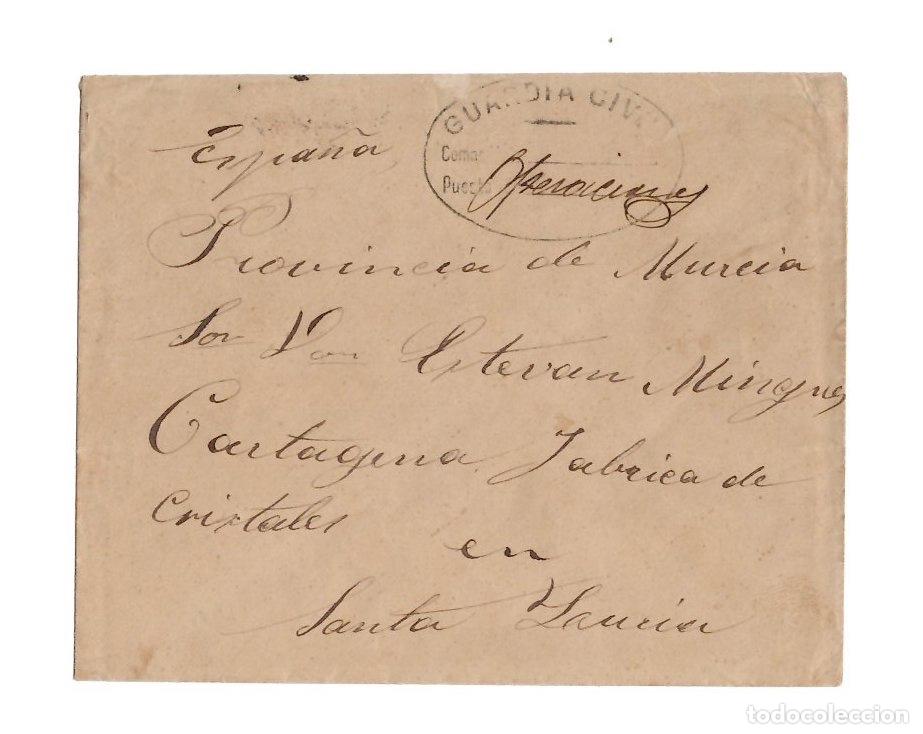 GUARDIA CIV
España,
Coma
Puesto
Operaciones
Provincia de Murcia
Sor Don Estevan Mingues
Cartagena Fabrica de
Cristales
en
Santa Laucia
todocoleccion